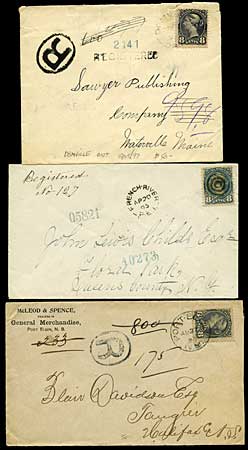 600
R
2141
REGISTERED
8 CENTS 8
Sawyer Publishing
Company
Waterville Maine
Registered
No 127
FRENCH RIVER
AP 20
95
P.E.I.
05821
10273
John Lewis Childs Esq
Floral Park
Queens County N.Y.
McLEOD & SPENCE,
DEALERS IN
General Merchandise,
PORT ELGIN, N. B.
233
800
R
175
Blair Davidson Esq
Tangier
Halifax Co N.S.